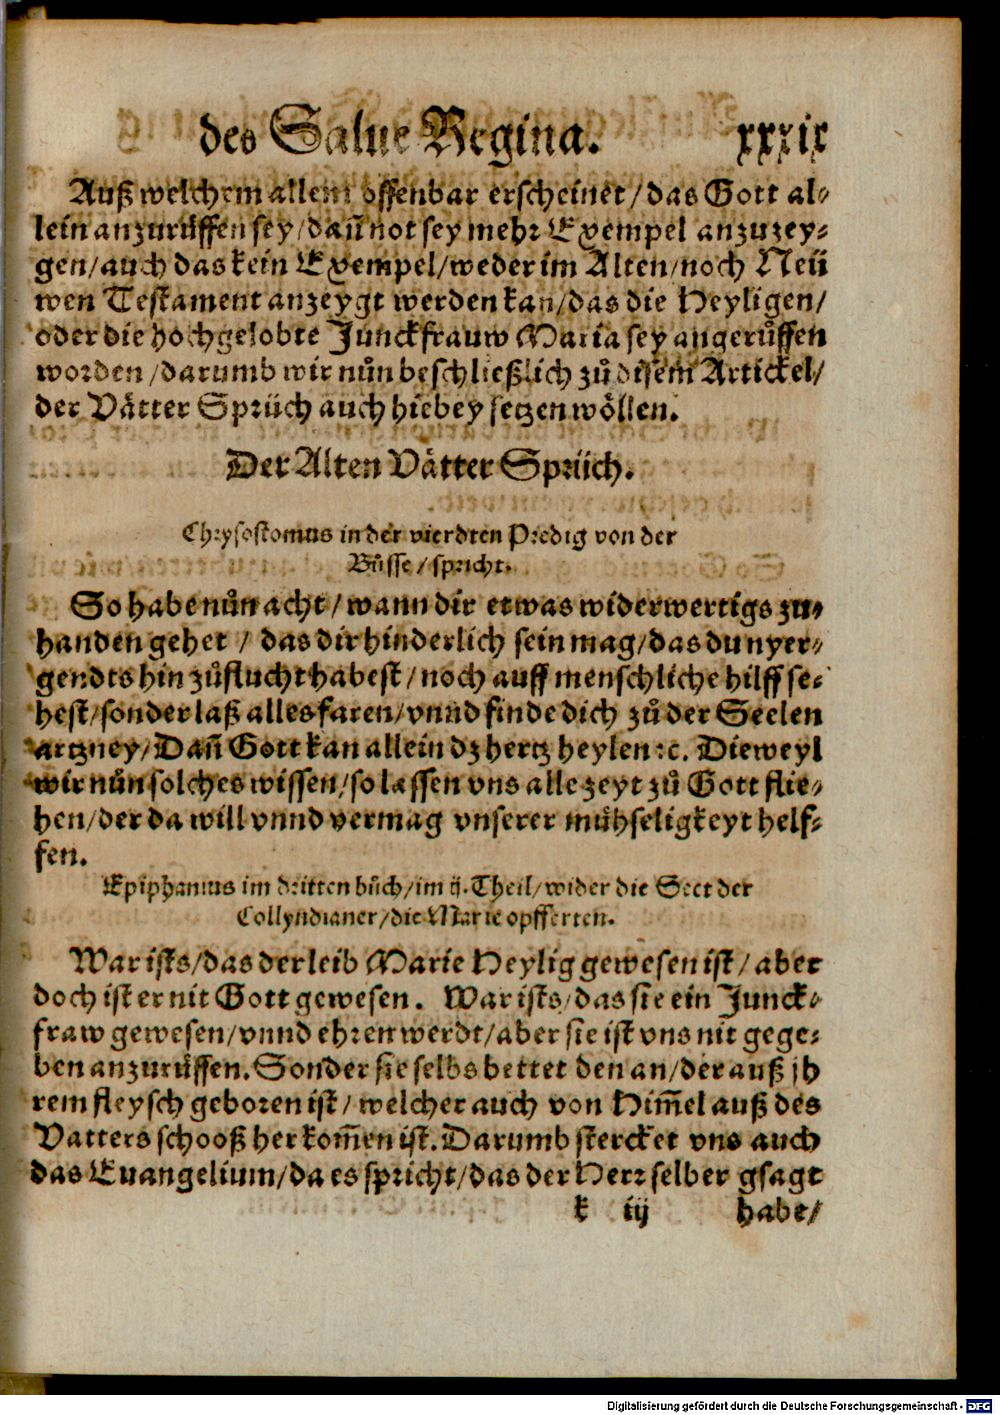 des Salue Regina. xxxix
Auß welchem allem offenbar erscheinet / das Gott al⸗
lein anzurůffen sey / dañ not sey mehr Exempel anzuzey⸗
gen / auch das kein Exempel / weder im Alten / noch Neü
wen Testament anzeygt werden kan / das die Heyligen /
oder die hochgelobte Junckfrauw Maria sey angerůffen
worden / darumb wir nůn beschließlich zů disem Artickel /
der Vätter Sprüch auch hiebey setzen wöllen.
Der Alten Vätter Sprüch.
Chrysostomus in der vierdten Predig von der
Bůsse / spricht.
So habe nůn acht / wann dir etwas widerwertigs zu⸗
handen gehet / das dir hinderlich sein mag / das du nyer⸗
gendts hin zůflucht habest / noch auff menschliche hilff se⸗
hest / sonder laß alles faren / vnnd finde dich zů der Seelen
artzney / Dañ Gott kan allein dz hertz heylen ꝛc. Dieweyl
wir nůn solches wissen / so lassen vns alle zeyt zů Gott flie⸗
hen / der da will vnnd vermag vnserer mühseligkeyt helf⸗
fen.
Epiphanius im dritten bůch / im ij. Theil / wider die Sect der
Collyridianer / die Marie opfferten.
War ists / das der leib Marie Heylig gewesen ist / aber
doch ist er nit Gott gewesen. War ists / das sie ein Junck⸗
fraw gewesen / vnnd ehren werdt / aber sie ist vns nit gege⸗
ben anzurůffen. Sonder sie selbs bettet den an / der auß jh
rem fleysch geboren ist / welcher auch von Him̃el auß des
Vatters schooß her kom̃en ist. Darumb stercket vns auch
das Euangelium / da es spricht / das der Herr selber gsagt
k iij habe /
Digitalisierung gefördert durch die Deutsche Forschungsgemeinschaft - DFG